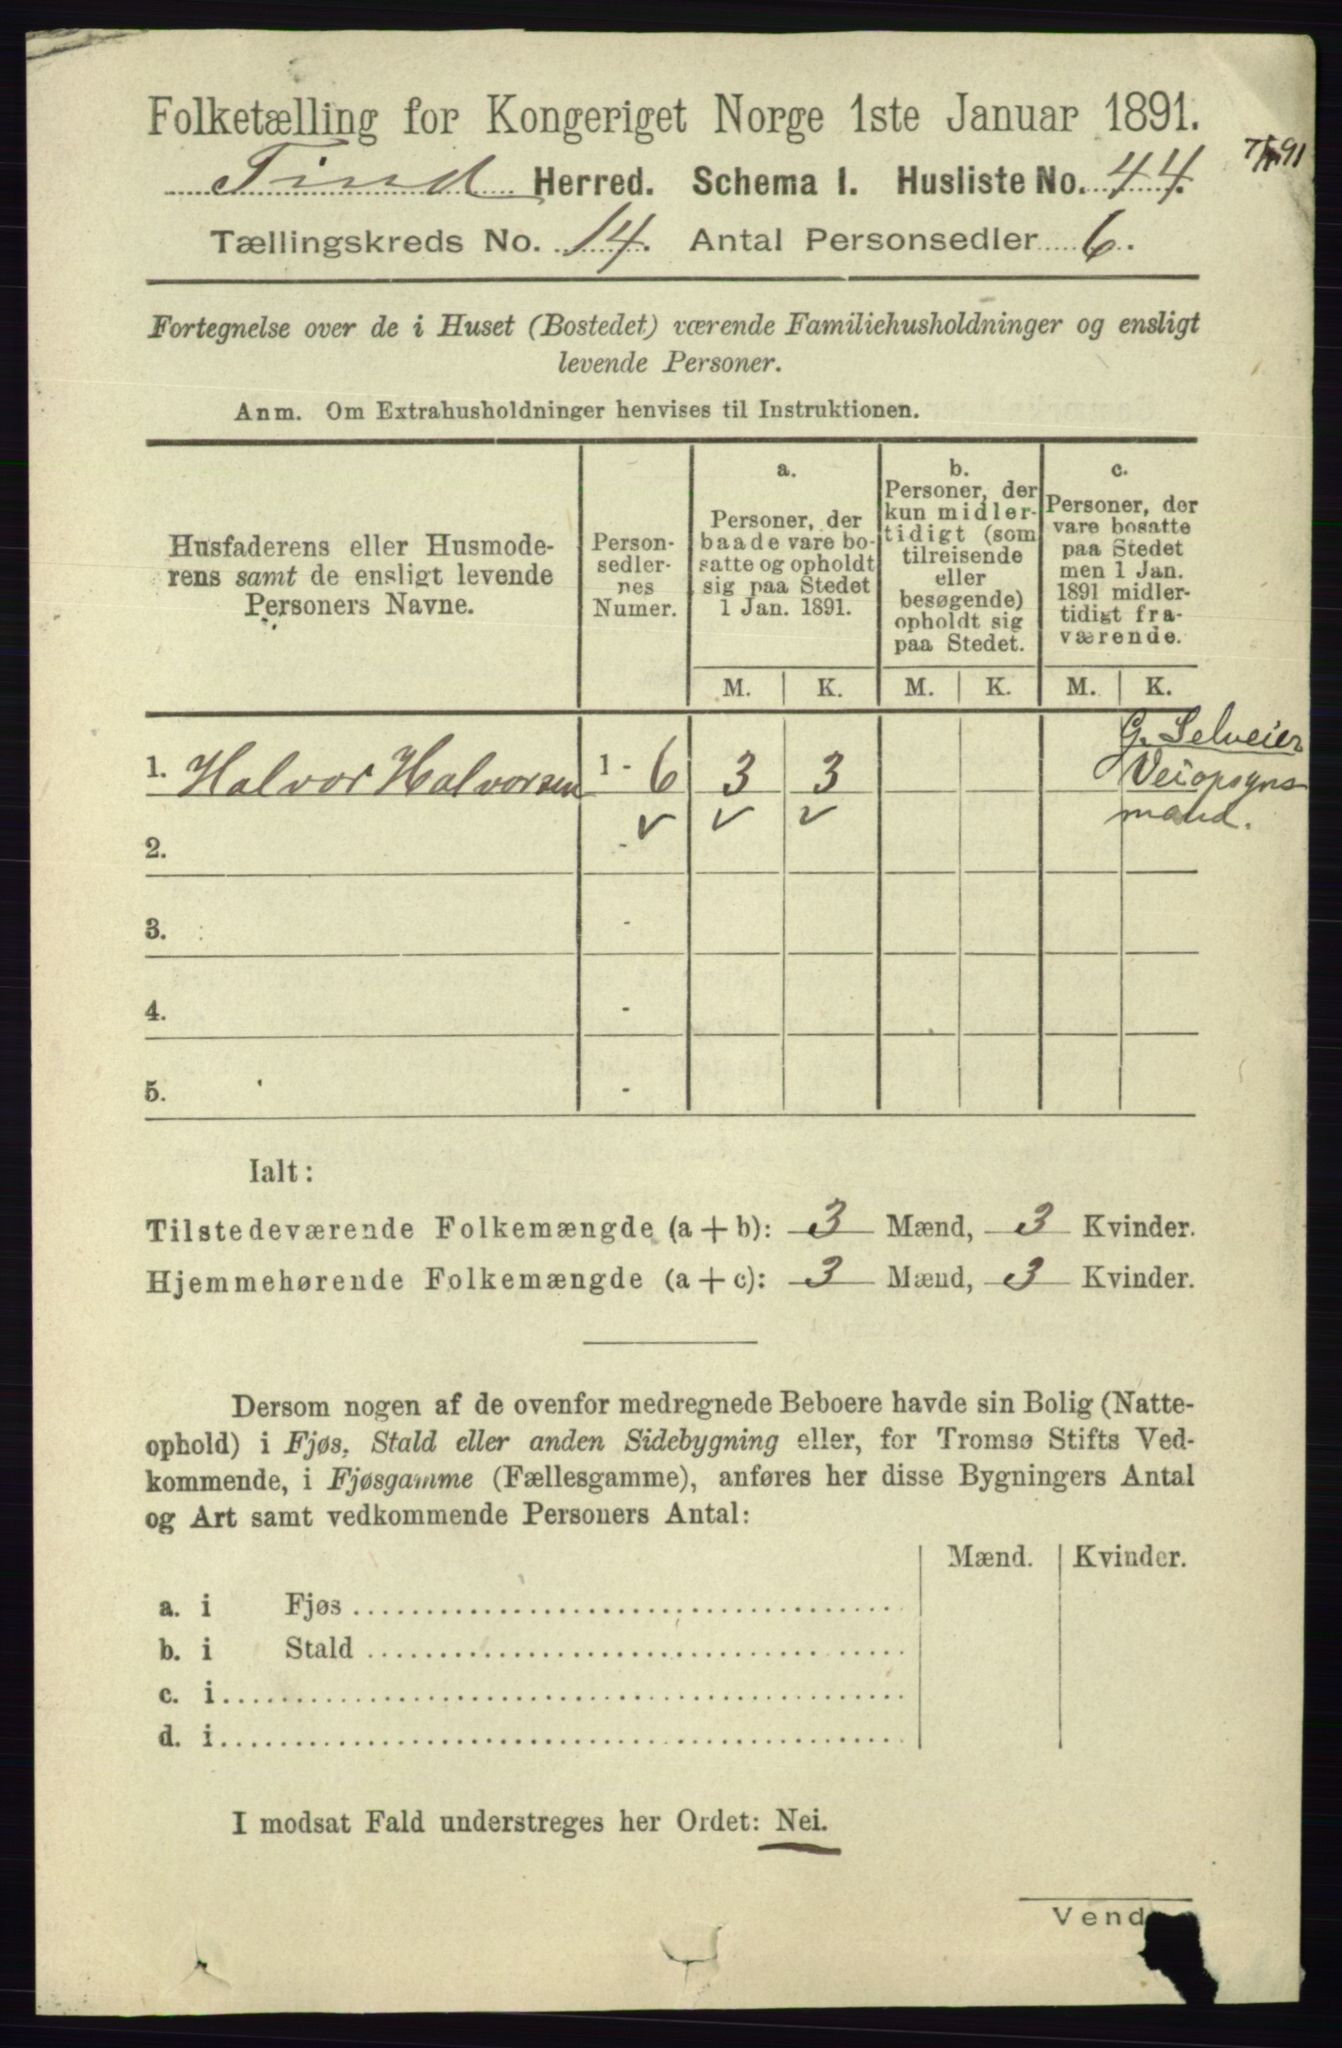 Folketælling for Kongeriget Norge 1ste Januar 1891.
Tind Herred. Schema 1. Husliste No. 44.
Tællingskreds No. 14. Antal Personsedler 6.
Fortegnelse over de i Huset (Bostedet) værende Familiehusholdninger og ensligt
levende Personer.
Anm. Om Extrahusholdninger henvises til Instruktionen.
Husfaderens eller Husmode-
rens samt de ensligt levende
Personers Navne.
Person-
sedler-
nes
Numer.
a.
Personer, der
baade vare bo-
satte og opholdt
sig paa Stedet
1 Jan. 1891.
b.
Personer, der
kun midler-
tidigt (som
tilreisende
eller
besøgende)
opholdt sig
paa Stedet.
c.
Personer, der
vare bosatte
paa Stedet
men 1 Jan.
1891 midler-
tidigt fra-
værende.
M. K. M. K. M. K.
1. Halvor Halvorsen 1 - 6 3 3
G. Selveier
Veiopsyns
mand.
2. -
3. -
4. -
5. -
Ialt:
Tilstedeværende Folkemængde (a + b): 3 Mænd, 3 Kvinder.
Hjemmehørende Folkemængde (a + c): 3 Mænd, 3 Kvinder.
Dersom nogen af de ovenfor medregnede Beboere havde sin Bolig (Natte-
ophold) i Fjøs, Stald eller anden Sidebygning eller, for Tromsø Stifts Ved-
kommende, i Fjøsgamme (Fællesgamme), anføres her disse Bygningers Antal
og Art samt vedkommende Personers Antal:
Mænd. Kvinder.
a. i Fjøs
b. i Stald
c. i
d. i
I modsat Fald understreges her Ordet: Nei.
Vend